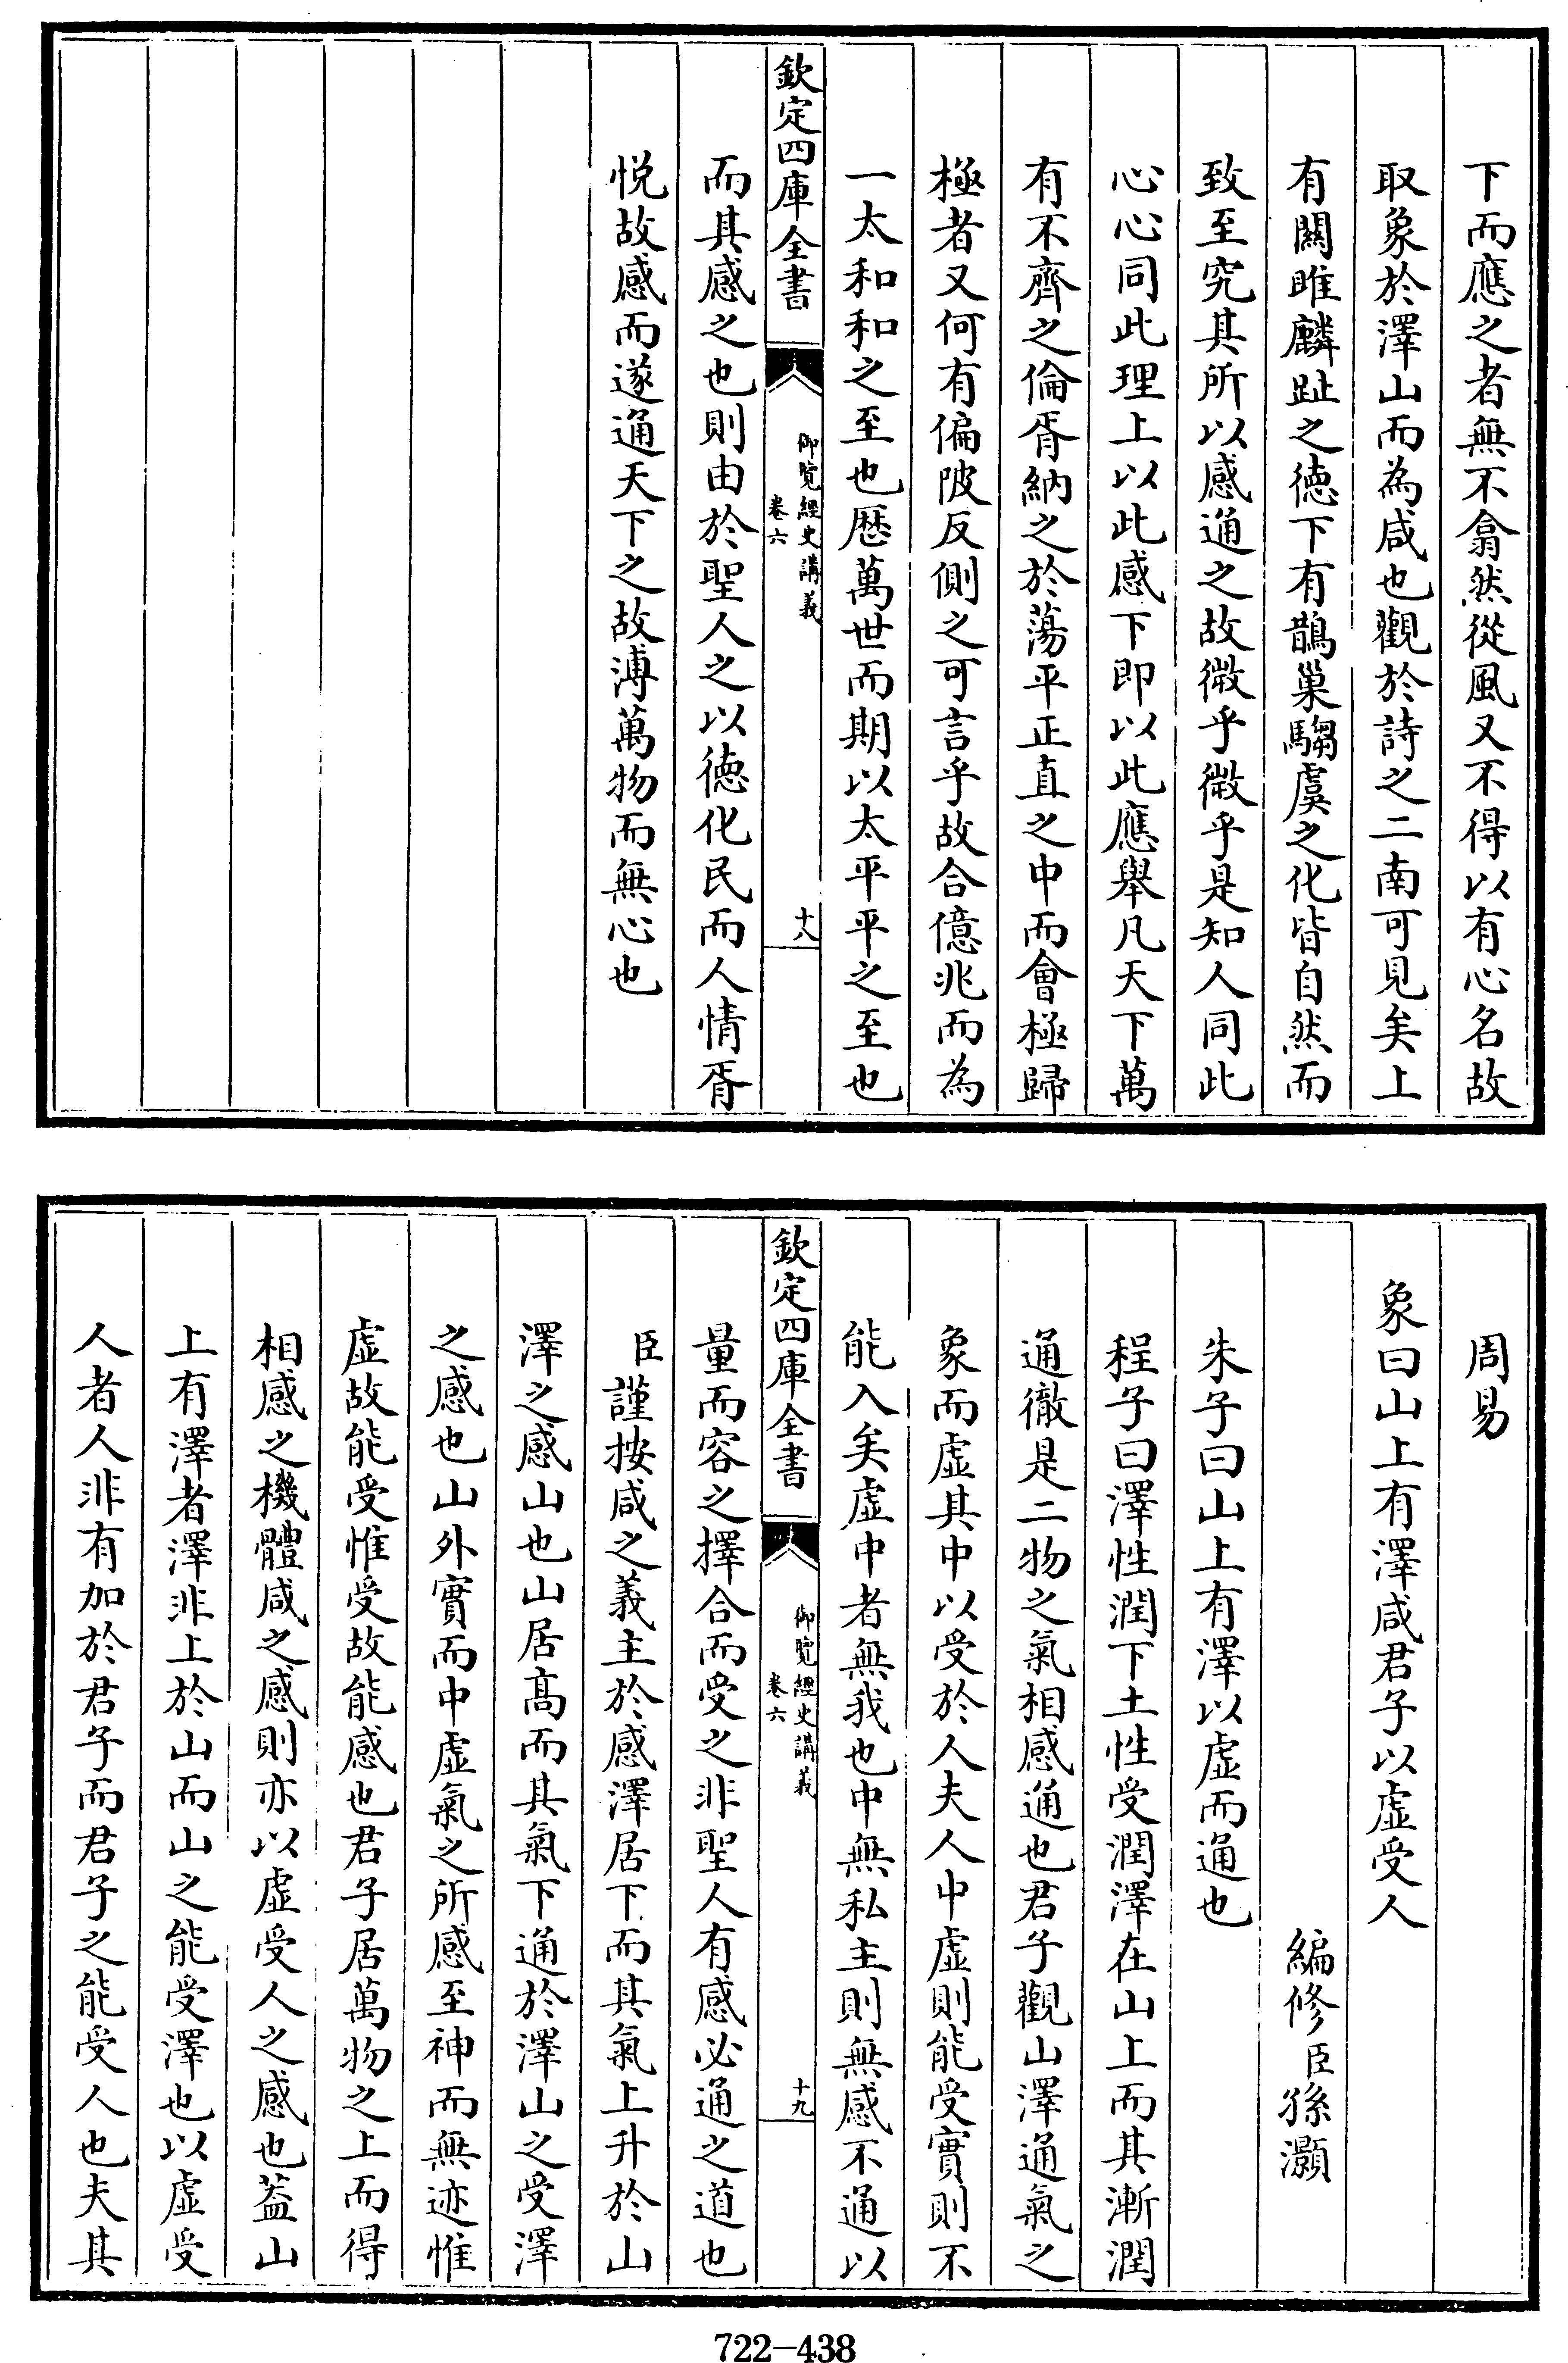 下而應之者無不翕然從風又不得以有心名故
取象於澤山而為咸也觀於詩之二南可見矣上
有關雎麟趾之徳下有鵲巢騶虞之化皆自然而
致至究其所以感通之故微乎微乎是知人同此
心心同此理上以此感下即以此應舉凡天下萬
有不齊之倫胥納之於蕩平正直之中而會極歸
極者又何有偏陂反側之可言乎故合億兆而為
一太和和之至也歴萬世而期以太平平之至也
欽定四庫全書
御覽經史講義
卷六
十八
而其感之也則由於聖人之以徳化民而人情胥
悦故感而遂通天下之故溥萬物而無心也
周易
象曰山上有澤咸君子以虚受人
編修臣孫灝
朱子曰山上有澤以虚而通也
程子曰澤性潤下土性受潤澤在山上而其漸潤
通徹是二物之氣相感通也君子觀山澤通氣之
象而虚其中以受於人夫人中虚則能受實則不
能入矣虚中者無我也中無私主則無感不通以
欽定四庫全書
御覽經史講義
卷六
十九
量而容之擇合而受之非聖人有感必通之道也
臣謹按咸之義主於感澤居下而其氣上升於山
澤之感山也山居髙而其氣下通於澤山之受澤
之感也山外實而中虚氣之所感至神而無迹惟
虚故能受惟受故能感也君子居萬物之上而得
相感之機體咸之感則亦以虚受人之感也葢山
上有澤者澤非上於山而山之能受澤也以虚受
人者人非有加於君子而君子之能受人也夫其
722-438